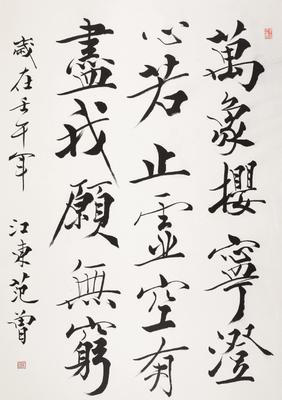 萬象攖寧澄
心若止虛空有
盡我願無窮
歲在壬午年 江東范曾